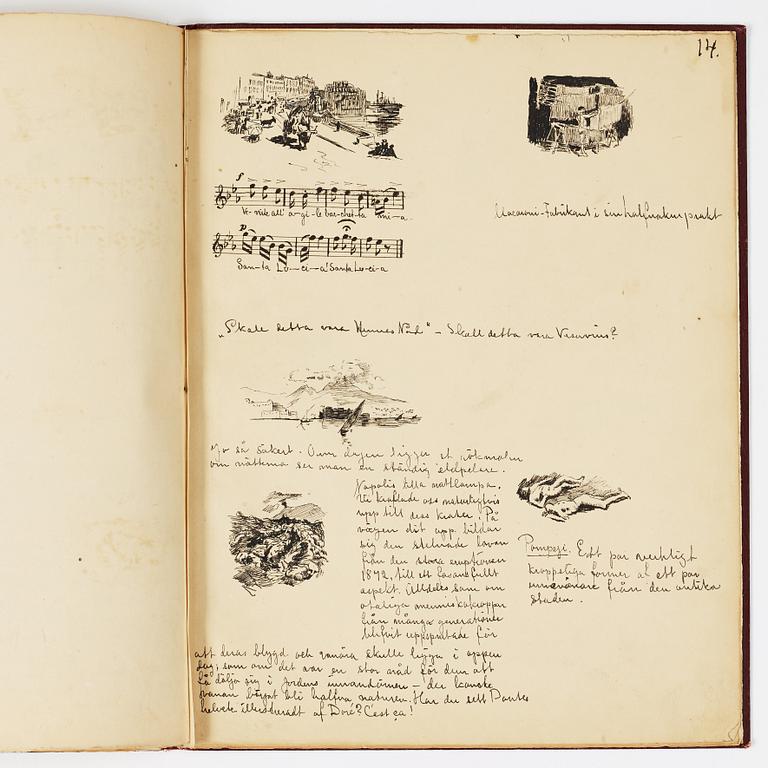 14.
f
Ve-nite all' a-gi-le bar-chet-ta mi-a.
p
San-ta Lu-ci-a! Santa Lu-ci-a
Macaroni-Fabrikant i sin halfnakna prakt
"Skall detta vara Hennes Nåd" - Skall detta vara Vesuvius?
Jo så säkert. Om dagen ligger ett rökmoln
om nätterna ser man en ständig eldpelare.
Napolis lilla nattlampa.
Vi kraflade oss naturligtvis
upp till dess krater. På
vägen dit upp bildar
sig den stelnade lavan
från den stora eruptionen
1872, till ett fasansfullt
aspekt. Alldeles som om
otaliga menniskokroppar
från många generationer
blifvit uppspottade för
att deras blygd och vanära skulle ligga i öppen
dag; som om det var en stor nåd för dem att
få dölja sig i jordens innandömen - der kanske
fvanan börjat bli halfva naturen. Har du sett Dantes
helvete illustreradt af Doré? C'est ça!
Pompeji. Ett par verkligt
kroppsliga former af ett par
innevånare från den antika
staden.